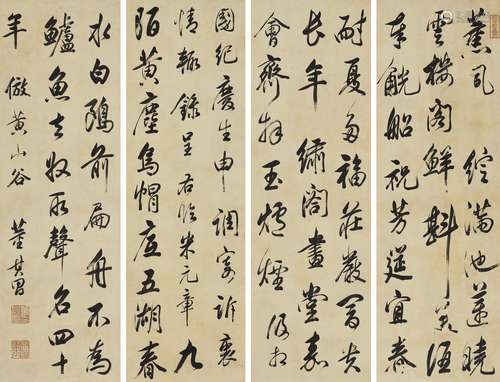 薰風 綻滿池蓮曉
雲樓閣鮮 斟美酒
奉觥船祝芳筵宜
耐夏多福莊嚴富貴
長年 繡閣畫堂嘉
會齊拜玉爐煙
國紀慶生申 調寄訴衷
情輒錄呈 右臨米元章 九
陌黃塵烏帽底五湖春
水白鷗前扁舟不為
鱸魚去收取聲名四十
年 倣黃山谷 董其昌